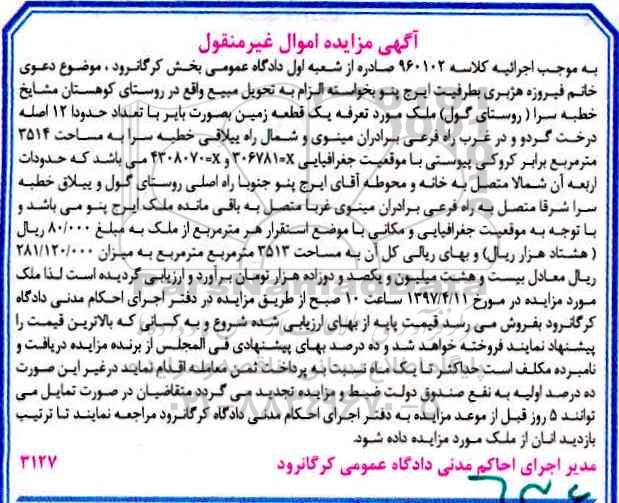 آگهی مزایده اموال غیرمنقول
به موجب اجرائیه کلاسه ۹۶۰۱۰۲ صادره از شعبه اول دادگاه عمومی بخش کرگانرود ، موضوع دعوی
خانم فیروزه هژبری بطرفیت ایرج پنو بخواسته الزام به تحویل مبیع واقع در روستای کوهستان مشایخ
خطبه سرا ( روستای گول) ملک مورد تعرفه یک قطعه زمین بصورت بایر با تعداد حدودا ۱۲ اصله
درخت گردو و در غرب راه فرعی برادران مینوی و شمال راه ییلاقی خطبه سرا به مساحت ۳۵۱۴
مترمربع برابر کروکی پیوستی با موقعیت جغرافیایی x=۳۰۶۷۸۱ و x=۴۳۰۸۰۷۰ می باشد که حدودات
اربعه آن شمالا متصل به خانه و محوطه آقای ایرج پنو جنوبا راه اصلی روستای گول و ییلاق خطبه
سرا شرقا متصل به راه فرعی برادران مینوی غربا متصل به باقی مانده ملک ایرج پنو می باشد و
با توجه به موقعیت جغرافیایی و مکانی با موضع استقرار هر مترمربع از ملک به مبلغ ۸۰/۰۰۰ ریال
( هشتاد هزار ریال) و بهای ریالی کل آن به مساحت ۳۵۱۳ مترمربع مترمربع به میزان ۲۸۱/۱۲۰/۰۰۰
ریال معادل بیست و هشت میلیون و یکصد و دوازده هزار تومان برآورد و ارزیابی گردیده است لذا ملک
مورد مزایده در مورخ ۱۳۹۷/۴/۱۱ ساعت ۱۰ صبح از طریق مزایده در دفتر اجرای احکام مدنی دادگاه
کرگانرود بفروش می رسد قیمت پایه از بهای ارزیابی شده شروع و به کسانی که بالاترین قیمت را
پیشنهاد نمایند فروخته خواهد شد و ده درصد بهای پیشنهادی فی المجلس از برنده مزایده دریافت و
نامبرده مکلف است حداکثر تا یک ماه نسبت به پرداخت ثمن معامله اقدام نماید درغیر این صورت
ده درصد اولیه به نفع صندوق دولت ضبط و مزایده تجدید می گردد متقاضیان در صورت تمایل می
توانند ۵ روز قبل از موعد مزایده به دفتر اجرای احکام مدنی دادگاه کرگانرود مراجعه نمایند تا ترتیب
بازدید انان از ملک مورد مزایده داده شود.
مدیر اجرای احاکم مدنی دادگاه عمومی کرگانرود ۳۱۲۷